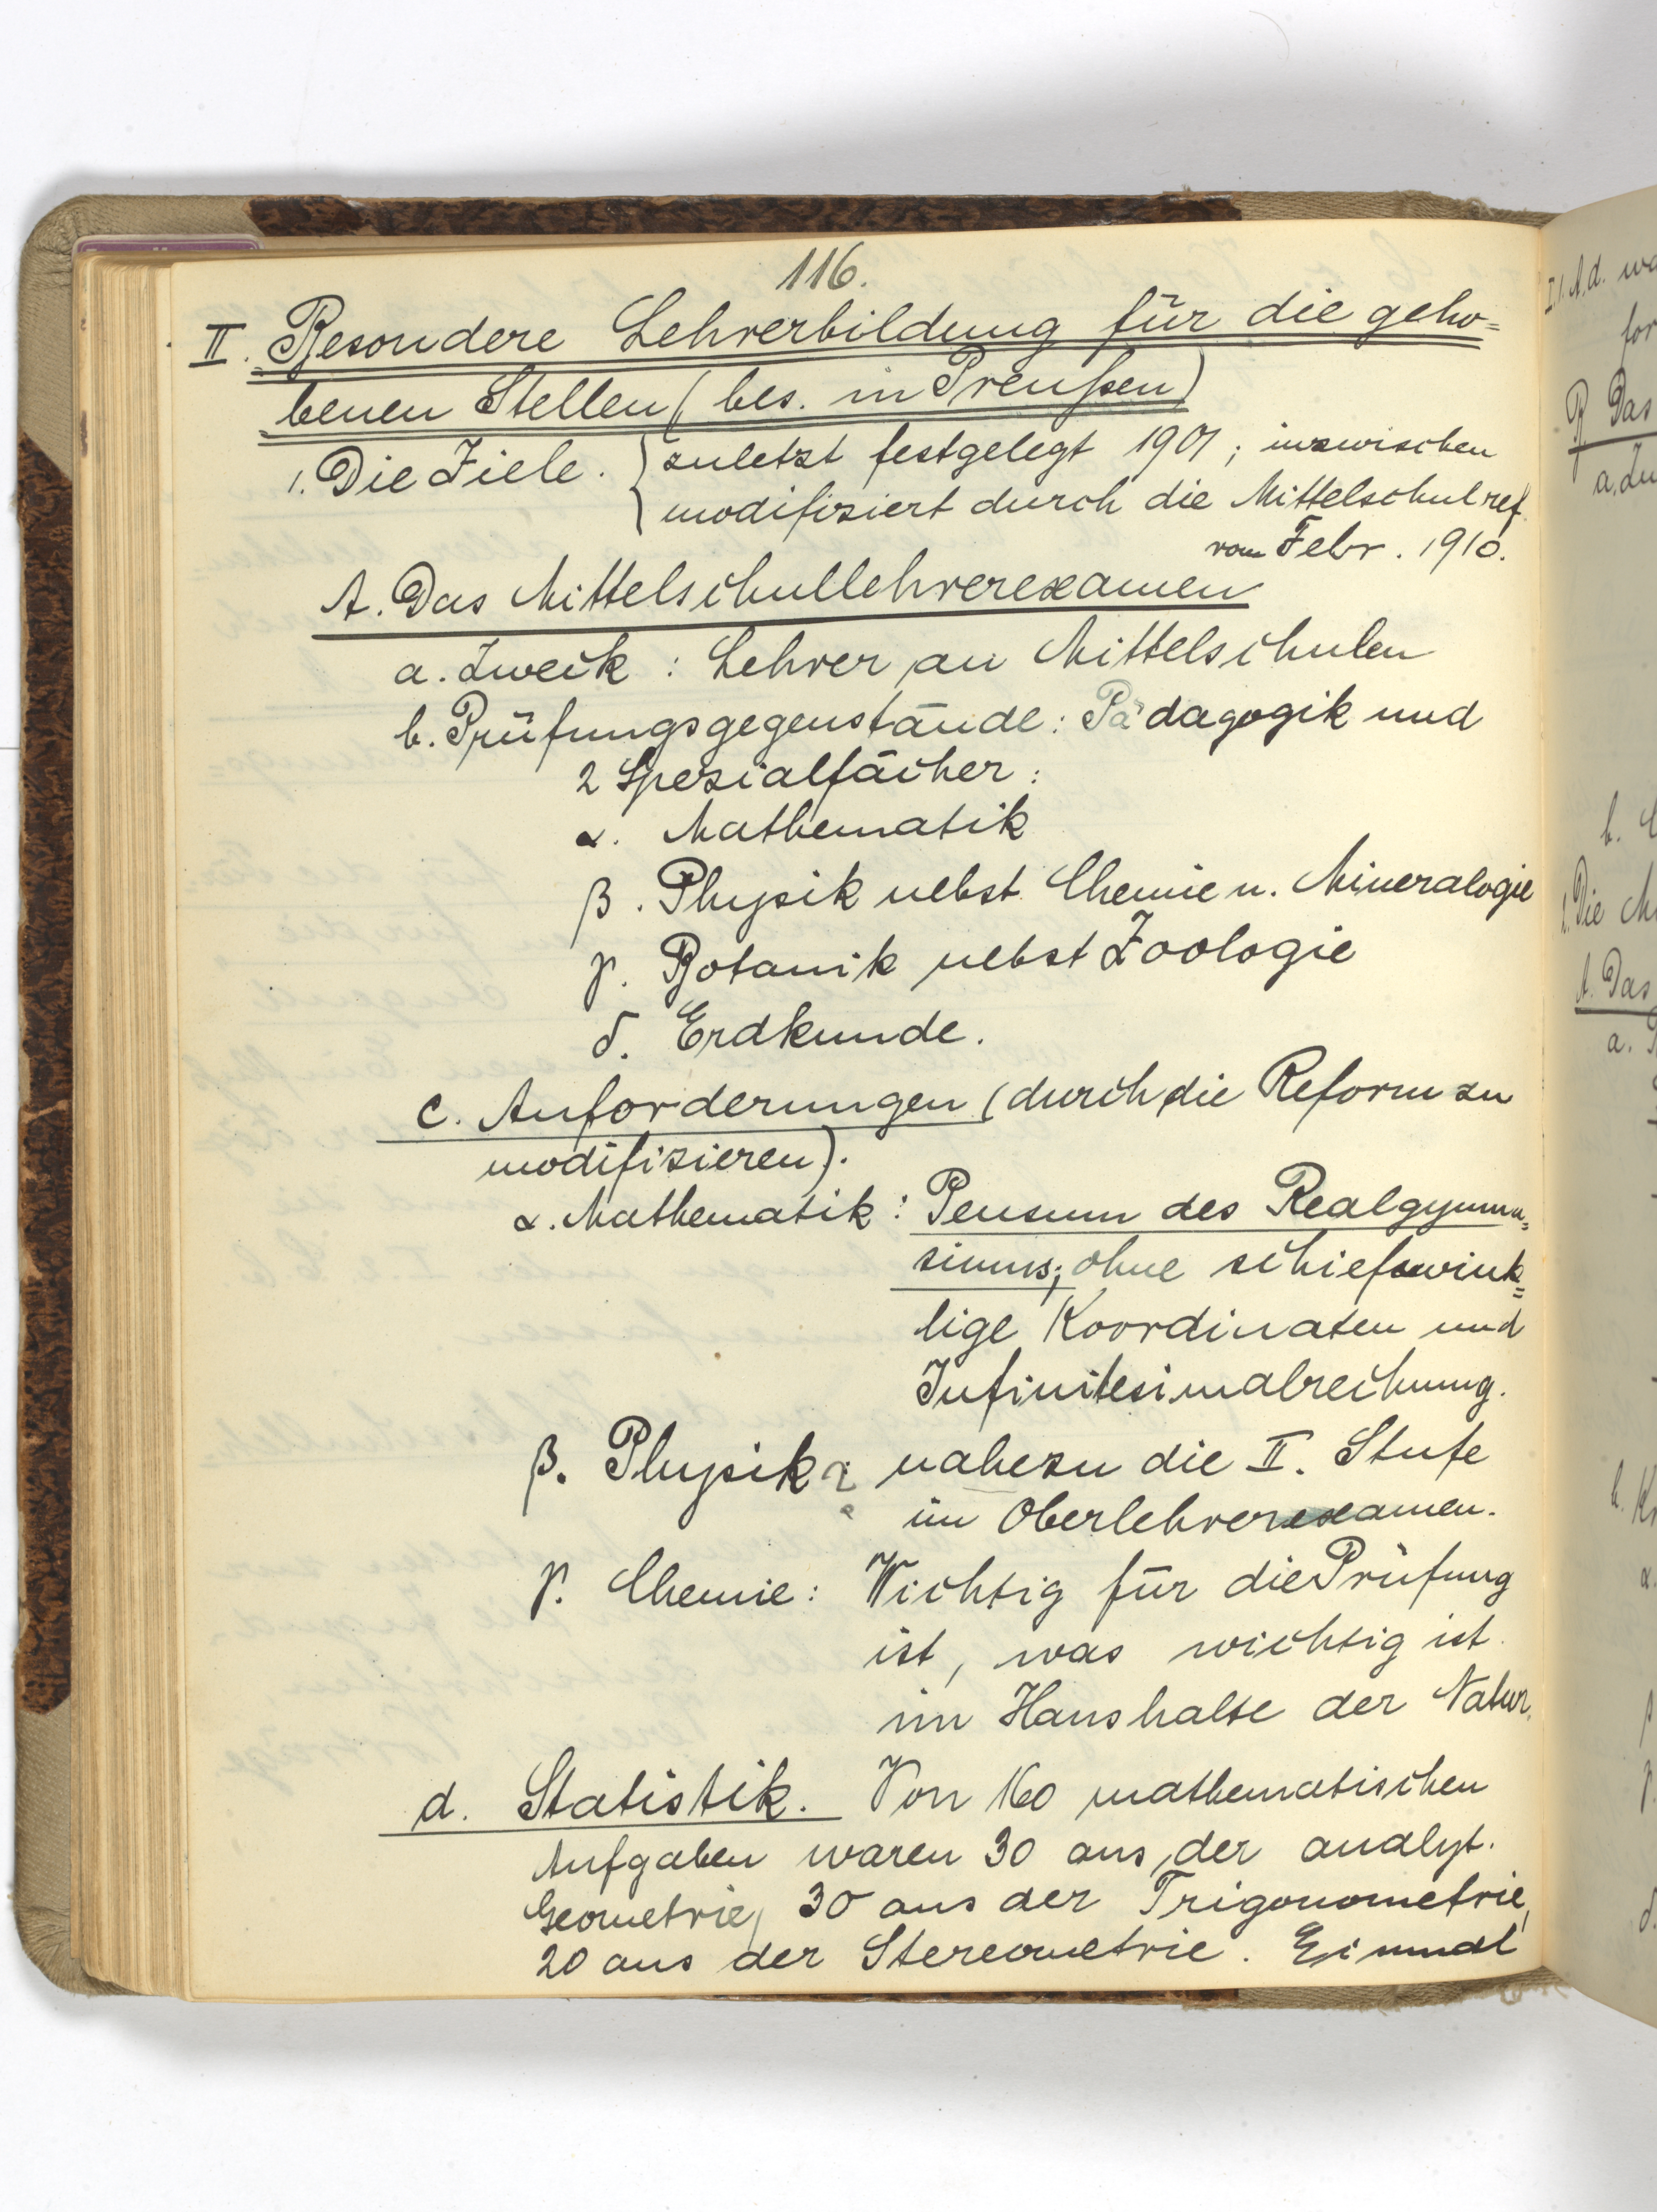 116.
II. Besondere Lehrerbildung für die geho=
benen Stellen (bes. in Preußen)
1. Die Ziele. { zuletzt festgelegt 1901; inzwischen
modifiziert durch die Mittelschulref.
vom Febr. 1910.
A. Das Mittelschullehrerexamen
a. Zweck : Lehrer an Mittelschulen
b. Prüfungsgegenstände: Pädagogik und
2 Spezialfächer:
α. Mathematik
β. Physik nebst Chemie u. Mineralogie
γ. Botanik nebst Zoologie
δ. Erdkunde.
c. Anforderungen (durch die Reform zu
modifizieren).
α. Mathematik: Pensum des Realgymna=
siums; ohne schiefwink=
lige Koordinaten und
Infinitesimalrechnung.
β. Physik: nahezu die II. Stufe
im Oberlehrerexamen.
γ. Chemie: Wichtig für die Prüfung
ist, was wichtig ist
im Haushalte der Natur.
d. Statistik. Von 160 mathematischen
Aufgaben waren 30 aus der analyt.
Geometrie, 30 aus der Trigonometrie,
20 aus der Stereometrie. Einmal